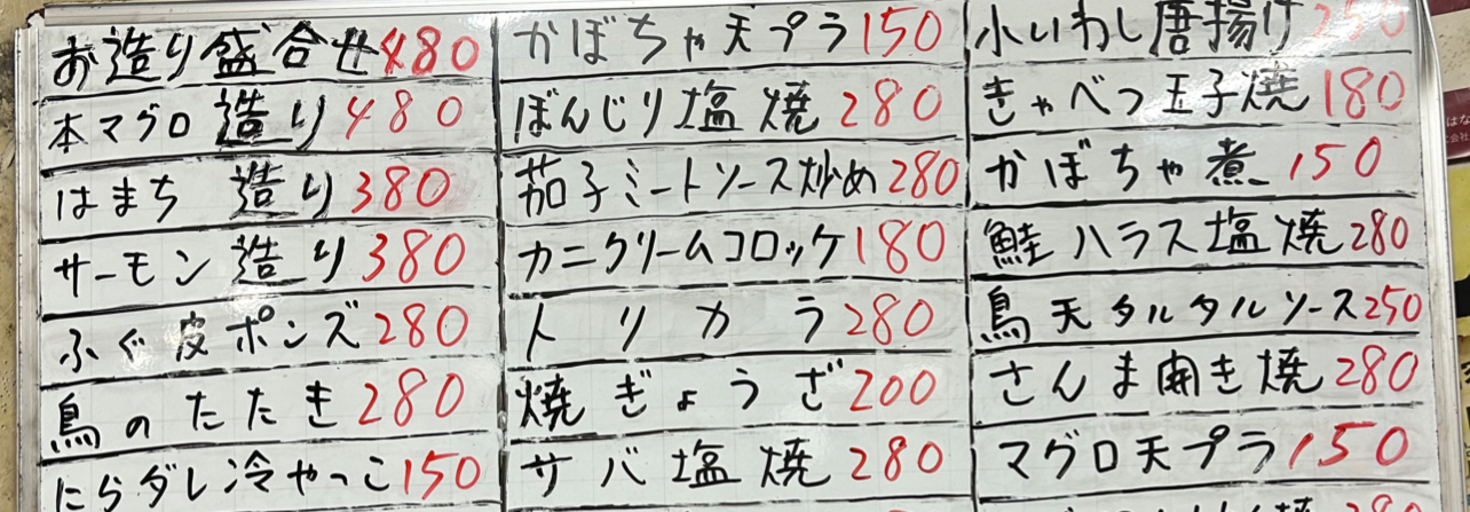 お造り盛合せ480
本マグロ造り480
はまち造り380
サーモン造り380
ふぐ皮ポンズ280
鳥のたたき280
にらダレ冷やっこ150
かぼちゃ天プラ150
ぼんじり塩焼280
茄子ミートソース炒め280
カニクリームコロッケ180
トリカラ280
焼ぎょうざ200
サバ塩焼280
小いわし唐揚げ250
きゃべつ玉子焼180
かぼちゃ煮150
鮭ハラス塩焼280
鳥天タルタルソース250
さんま開き焼280
マグロ天プラ150